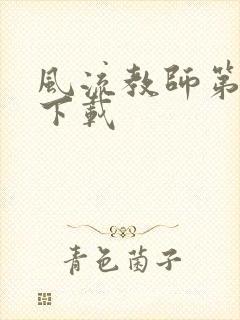 風流教師第
下載
青色菌子